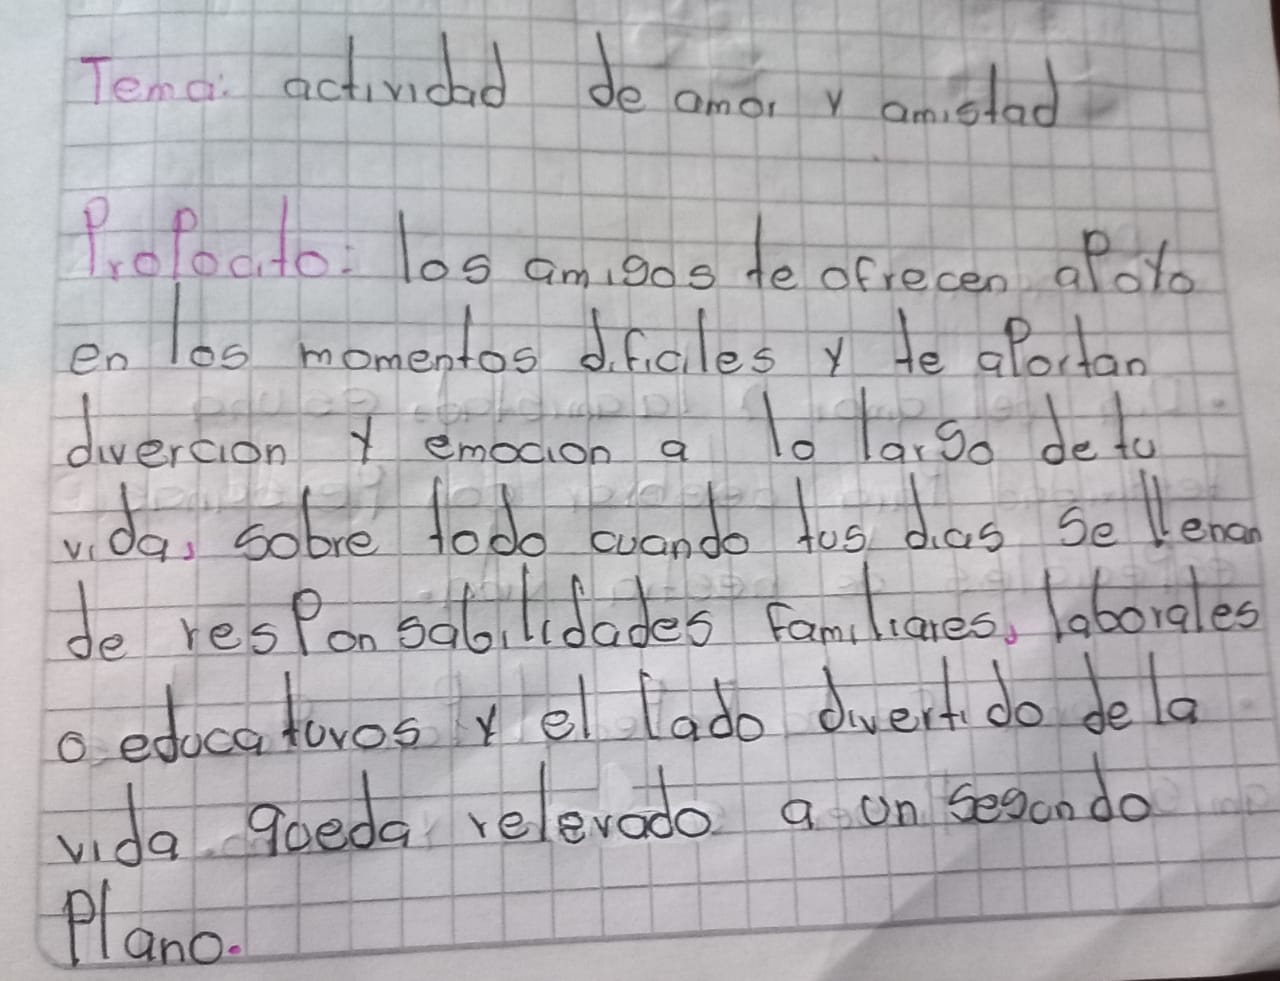 Tema: actividad de amor y amistad
Propocito: los amigos te ofrecen apoyo
en los momentos dificiles y te aportan
divercion y emocion a lo largo de tu
vida, sobre todo cuando tus dias se llenan
de responsabilidades familiares, laborales
o educativos y el lado divertido de la
vida queda relevado a un segundo
plano.